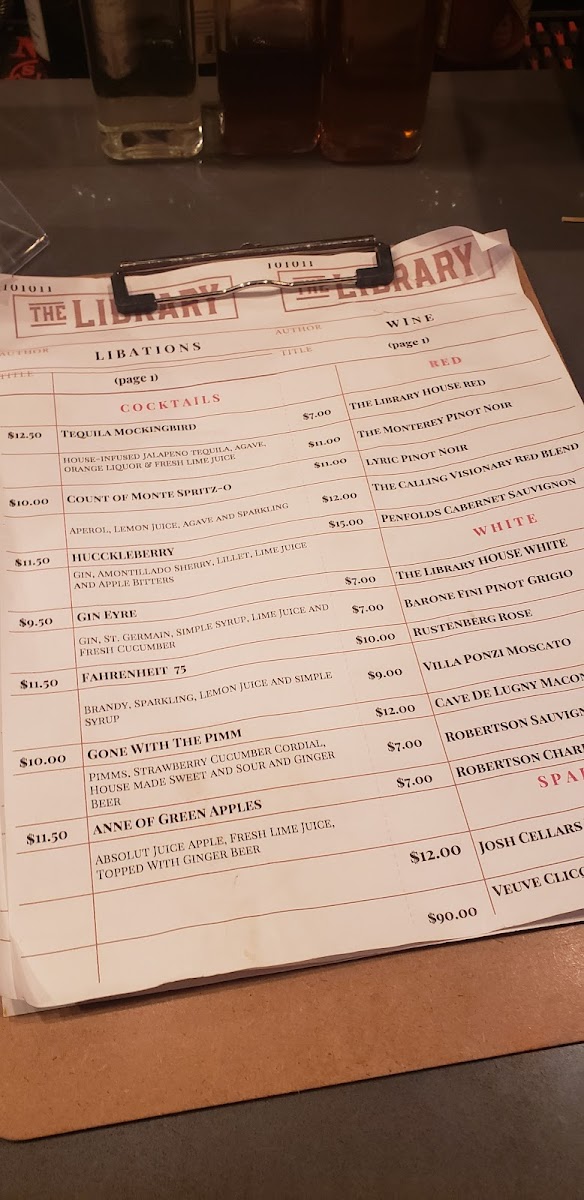 101011
THE LIBRARY
AUTHOR
LIBATIONS
TITLE
(page 1)
COCKTAILS
$12.50 TEQUILA MOCKINGBIRD
HOUSE-INFUSED JALAPENO TEQUILA, AGAVE,
ORANGE LIQUOR & FRESH LIME JUICE
$10.00 COUNT OF MONTE SPRITZ-O
APEROL, LEMON JUICE, AGAVE AND SPARKLING
$11.50 HUCCKLEBERRY
GIN, AMONTILLADO SHERRY, LILLET, LIME JUICE
AND APPLE BITTERS
$9.50 GIN EYRE
GIN, ST. GERMAIN, SIMPLE SYRUP, LIME JUICE AND
FRESH CUCUMBER
$11.50 FAHRENHEIT 75
BRANDY, SPARKLING, LEMON JUICE AND SIMPLE
SYRUP
$10.00 GONE WITH THE PIMM
PIMMS, STRAWBERRY CUCUMBER CORDIAL,
HOUSE MADE SWEET AND SOUR AND GINGER
BEER
$11.50 ANNE OF GREEN APPLES
ABSOLUT JUICE APPLE, FRESH LIME JUICE,
TOPPED WITH GINGER BEER
101011
THE LIBRARY
AUTHOR
WINE
TITLE
(page 1)
RED
$7.00 THE LIBRARY HOUSE RED
$11.00 THE MONTEREY PINOT NOIR
$11.00 LYRIC PINOT NOIR
$12.00 THE CALLING VISIONARY RED BLEND
$15.00 PENFOLDS CABERNET SAUVIGNON
WHITE
$7.00 THE LIBRARY HOUSE WHITE
$7.00 BARONE FINI PINOT GRIGIO
$10.00 RUSTENBERG ROSE
$9.00 VILLA PONZI MOSCATO
$12.00 CAVE DE LUGNY MACON
$7.00 ROBERTSON SAUVIGN
$7.00 ROBERTSON CHAR
SPA
$12.00 JOSH CELLARS
$90.00 VEUVE CLIC